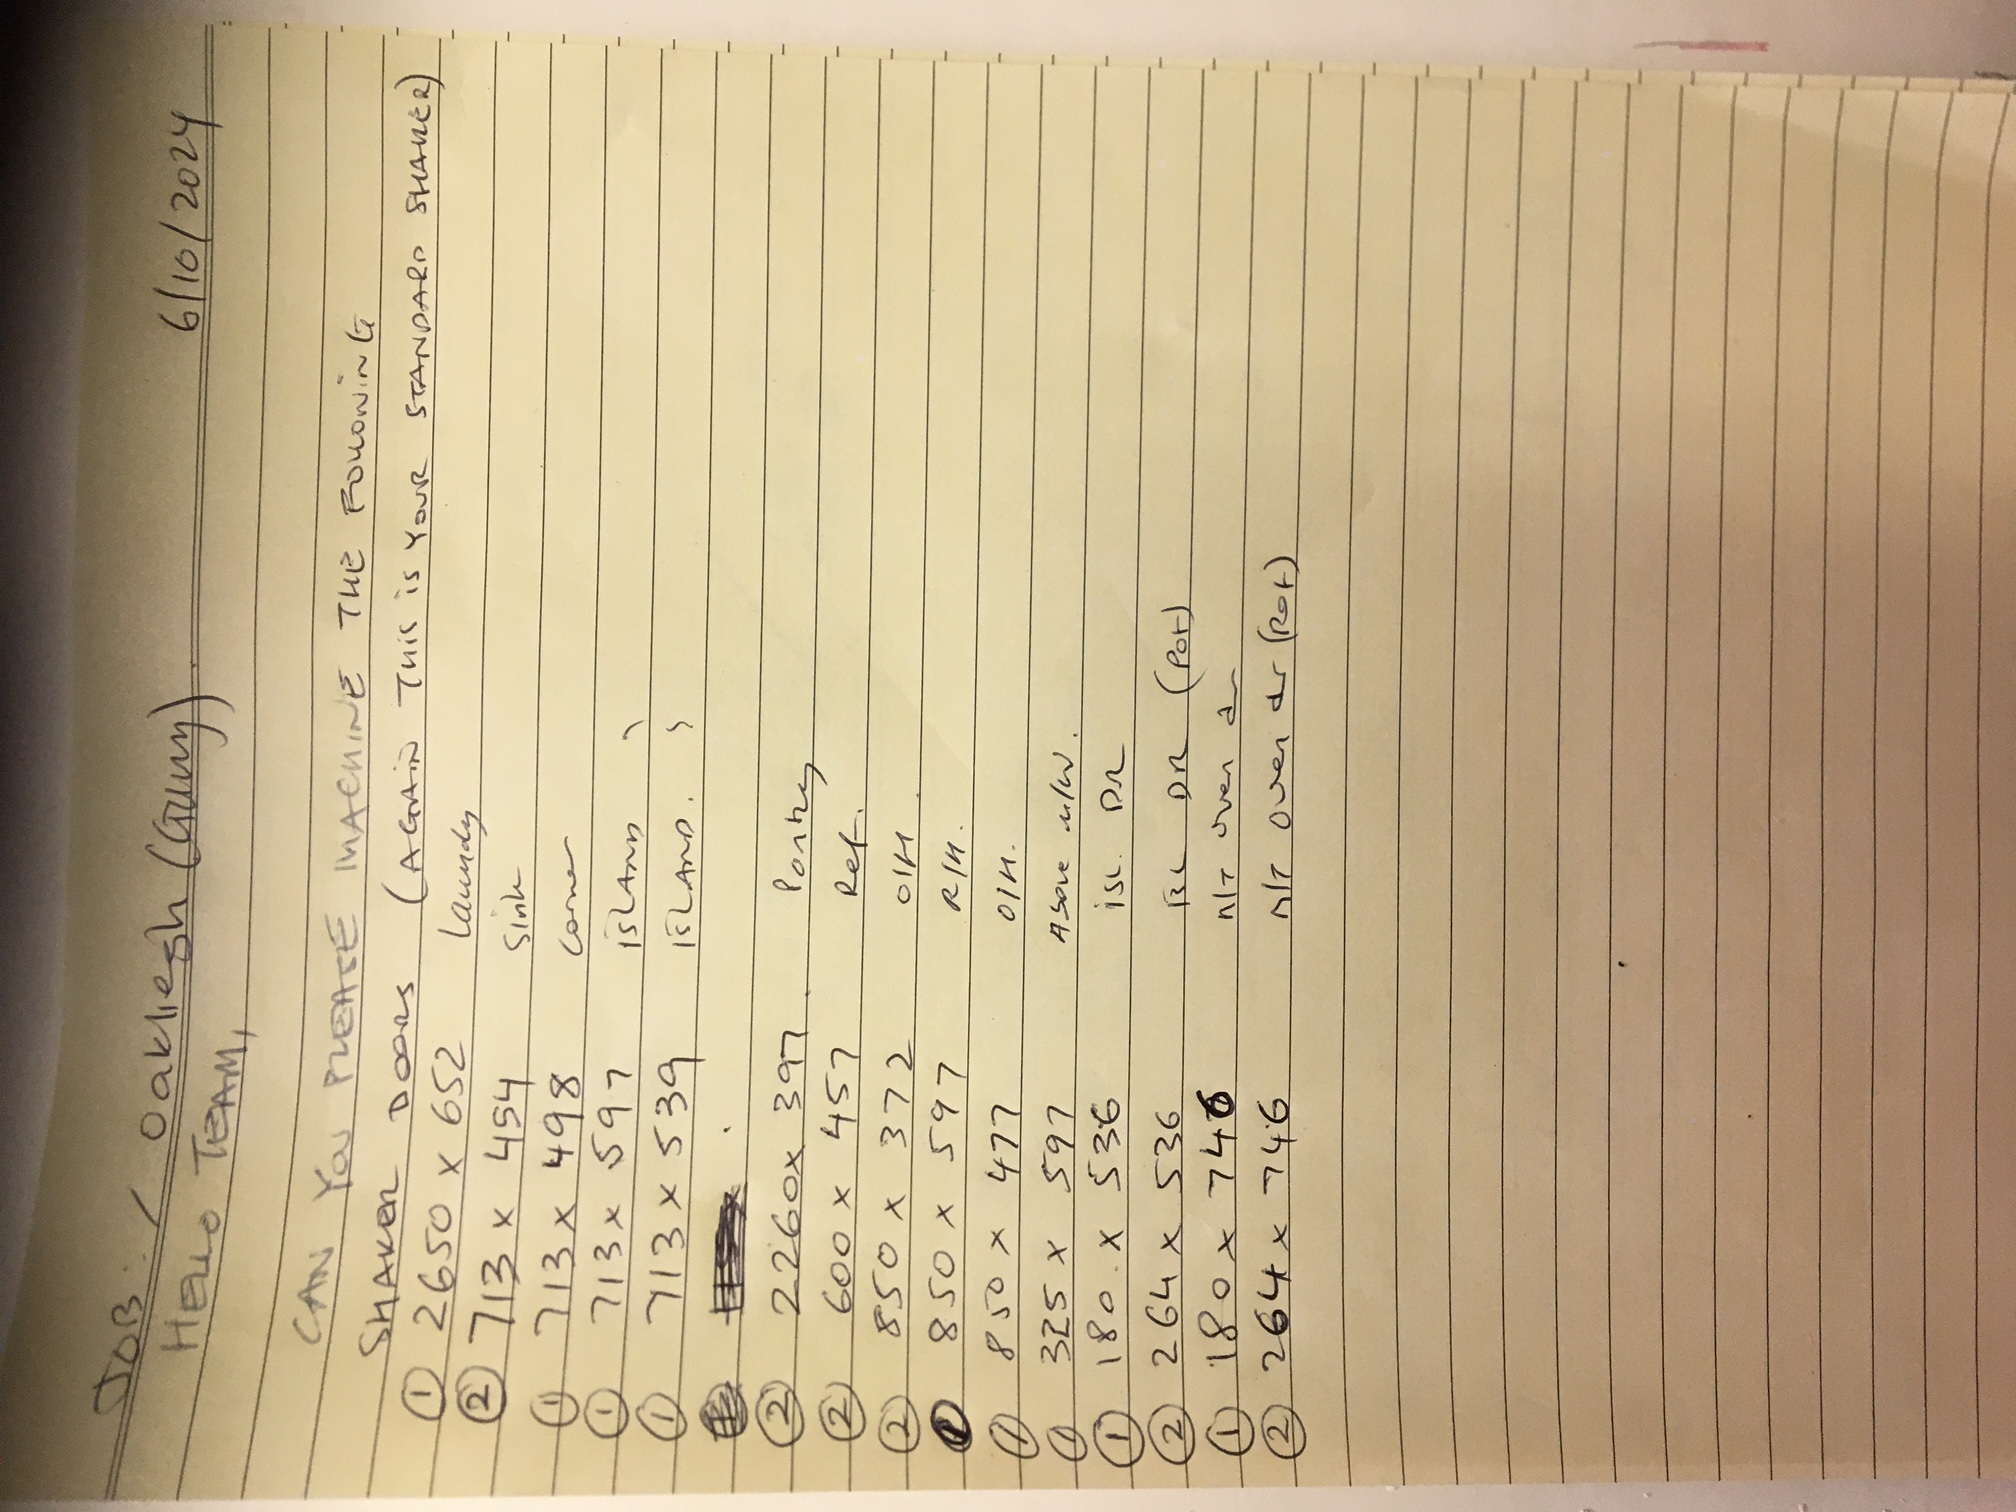 JOB: / Oakliegh (Gunny) 6/10/2024
HELLO TEAM,
CAN YOU PLEASE MACHINE THE FOLLOWING
SHAKER DOORS (AGAIN THIS IS YOUR STANDARD SHAKER)
① 2650 x 652 Laundry
② 713 x 454 Sink
① 713 x 498 Corner
① 713 x 597 ISLAND
① 713 x 539 ISLAND.
② 2260 x 397 Pantry
② 600 x 457 Ref.
② 850 x 372 O/H
① 850 x 597 R/H.
① 850 x 477 O/H.
① 325 x 597 Above M/W.
① 180 x 536 ISL. DR
② 264 x 536 ISL DR (Pot)
① 180 x 746 N/T oven dr
② 264 x 746 N/T oven dr (Pot)